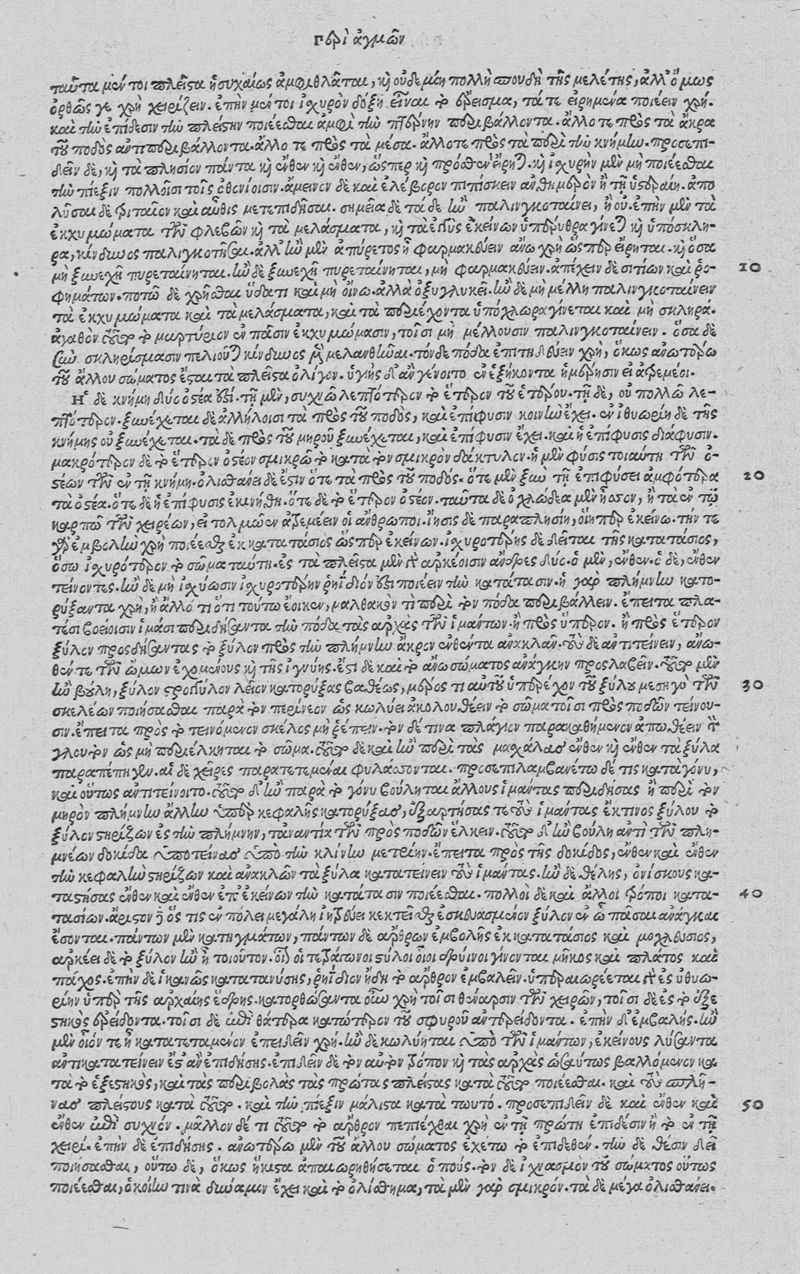 περὶ ἀγμῶν
ταῦτα μέν τοι πλεῖστα ἡσυχαίως ἀμφιθλᾶται, κỳ οὐδεμίη πολλὴ σπουδὴ τῆς μελέτης, ἀλλ' ὅμως
ὀρθῶς γε χρὴ χειρίζειν. ἐπὴν μέν τοι ἰχυρὸν δόξῃ εἶναι τὸ ἔρεισμα, τά τε εἰρημένα ποιέειν χρή.
καὶ τὴν ἐπίδεσιν τὴν πλείστην ποιέεσθαι ἀμφὶ τὴν πτέρνην περιβάλλοντα. ἄλλοτε πρὸς τὰ ἄκρα
τοῦ ποδὸς ἀντιπεριβάλλοντα. ἄλλοτε πρὸς τὰ μέσα. ἄλλοτε πρὸς τὰ περὶ τὴν κνήμην. προσεπι-
δεῖν δὲ, καὶ τὰ πλησίον πάντα καὶ ἔνθεν καὶ ἔνθεν, ὥσπερ καὶ πρόσθεν εἴρηται. καὶ ἰχυρὴν μὲν μὴ ποιέεσθαι
τὴν πίεξιν πολλοῖσι τοῖς ὀθονίοισιν. ἄμεινον δὲ καὶ ἐλέβορον πιπίσκειν αὐθημερὸν ἢ τῇ ὑστεραίῃ. ἀπο
λῦσαι δὲ τριταῖον καὶ αὖθις μετεπιδῆσαι. σημεῖα δὲ τάδε ἢν παλιγκοταίνει, ἢ οὔ. ἐπὴν μὲν τὰ
ἐκχυμώματα τῶν φλεβῶν καὶ τὰ μελάσματα, καὶ τὰ ἐγγὺς ἐκείνων ὑπέρυθρα γίνεται καὶ ὑπόσκλη-
ρα, κίνδυνος παλιγκοτῆσαι. ἀλλ' ἢν μὲν ἀπύρετος ᾖ φαρμακεύειν ἄνω χρὴ ὥσπερ εἴρηται. καὶ ὅσα
μὴ ξυνεχῆ πυρεταίνηται. ἢν δὲ ξυνεχῆ πυρεταίνηται, μὴ φαρμακεύειν. ἀπέχειν δὲ σιτίων καὶ ῥο- 10
φημάτων. ποτῷ δὲ χρῆσθαι ὕδατι καὶ μὴ οἴνῳ. ἀλλὰ ὀξυγλυκεῖ. ἢν δὲ μὴ μέλλῃ παλιγκοταίνειν
τὰ ἐκχυμώματα καὶ τὰ μελάσματα, καὶ τὰ περιέχοντα ὑπόχλωρα γίνεται καὶ μὴ σκληρά.
ἀγαθὸν τοῦτο τὸ μαρτύριον ἐν πᾶσιν ἐκχυμώμασιν, τοῖσι μὴ μέλλουσιν παλιγκοταίνειν. ὅσα δὲ
ξὺν σκληρίσμασιν πελιοῦται κίνδυνος μὴ μελανθῆναι. τὸν δὲ πόδα ἐπιτηδεύειν χρὴ, ὅκως ἀνωτέρω
τοῦ ἄλλου σώματος ἔσται τὰ πλεῖστα ὀλίγον. ὑγιὴς δ' ἂν γένοιτο ἐν ἑξήκοντα ἡμέρῃσιν εἰ ἀτρεμέοι.
Ἡ δὲ κνήμη δύο ὀστέα ἐστὶ. τῇ μὲν, συχνῷ λεπτότερον τὸ ἕτερον τοῦ ἑτέρου. τῇ δὲ, οὐ πολλῷ λε-
πτότερον. ξυνέχεται δὲ ἀλλήλοισι τὰ πρὸς τοῦ ποδὸς, καὶ ἐπίφυσιν κοινὴν ἔχει. ἐν ἰθυωρίῃ δὲ τῆς
κνήμης οὐ ξυνέχεται. τὰ δὲ πρὸς τοῦ μηροῦ ξυνέχεται, καὶ ἐπίφυσιν ἔχει. καὶ ἡ ἐπίφυσις διάφυσιν.
μακρότερον δὲ τὸ ἕτερον ὀστέον σμικρῷ τὸ κατὰ τὸν σμικρὸν δάκτυλον. ἡ μὲν φύσις τοιαύτη τῶν ὀ-
στέων τῶν ἐν τῇ κνήμῃ. ὀλισθάνει δὲ ἔστιν ὅτε τὰ πρὸς τοῦ ποδός. ὁτὲ μὲν ξὺν τῇ ἐπιφύσει ἀμφότερα 20
τὰ ὀστέα. ὁτὲ δὲ ἡ ἐπίφυσις ἐκινήθη. ὁτὲ δὲ τὸ ἕτερον ὀστέον. ταῦτα δὲ ὀχλώδεα μὲν ἧσσον, ἢ τὰ ἐν τῷ
καρπῷ τῶν χειρέων, εἰ τολμῷεν ἀτρεμέειν οἱ ἄνθρωποι. ἴησις δὲ παραπλησίη, οἵηπερ ἐκείνων. τήν τε
γὰρ ἐμβολὴν χρὴ ποιέεσθαι ἐκ κατατάσιος ὥσπερ ἐκείνων. ἰχυροτέρης δὲ δεῖται τῆς κατατάσιος,
ὅσῳ ἰχυρότερον τὸ σῶμα ταύτῃ. ἐς τὰ πλεῖστα μὲν οὖν ἀρκέοισιν ἄνδρες δύο. ὁ μὲν, ἔνθεν. ὁ δὲ, ἔνθεν
τείνοντες. ἢν δὲ μὴ ἰχύωσιν ἰχυροτέρην ῥηΐδιόν ἐστι ποιέειν τὴν κατάτασιν. ἢ γὰρ πλήμνην κατο-
ρύξαντα χρὴ, ἢ ἄλλό τι ὅτι τούτῳ ἔοικεν, μαλθακόν τι περὶ τὸν πόδα περιβάλλειν. ἔπειτα πλα-
τέσι βοέοισιν ἱμᾶσι περιδήσαντα τὸν πόδα τὰς ἀρχὰς τῶν ἱμάντων. ἢ πρὸς ὕπερον. ἢ πρὸς ἕτερον
ξύλον προσδήσαντας τὸ ξύλον πρὸς τὴν πλήμνην ἄκρον ἐνθέντα ἀνακλᾶν. τοὺς δὲ ἀντιτείνειν, ἄνω-
θέν τε τῶν ὤμων ἐχομένους καὶ τῆς ἰγνύης. ἔστι δὲ καὶ τὸ ἄνω σώματος ἀνάγκῃ προσλαβεῖν. τοῦτο μὲν
ἢν βούλῃ, ξύλον στρογγύλον λεῖον κατορύξας βαθέως, μέρος τι αὐτοῦ ὑπερέχον τοῦ ξύλου μεσηγὺ τῶν 30
σκελέων ποιήσασθαι παρὰ τὸν περίνεον ὡς κωλύει ἀκολουθέειν τὸ σῶμα τοῖσι πρὸς ποδῶν τείνου-
σιν. ἔπειτα πρὸς τὸ τεινόμενον σκέλος μὴ ῥέπειν. τὸν δέ τινα πλάγιον παρακαθήμενον ἀπωθέειν τὸν
γλουτὸν ὡς μὴ περιέλκηται τὸ σῶμα. τοῦτο δὲ καὶ ἢν περὶ τὰς μασχάλας ἔνθεν καὶ ἔνθεν τὰ ξύλα
παραπέπηγεν. αἱ δὲ χεῖρες παρατεταμέναι φυλάσσονται. προσεπιλαμβανέτω δέ τις κατὰ γόνυ,
καὶ οὕτως ἀντιτείνοιτο. τοῦτο δ' ἢν παρὰ τὸ γόνυ βούληται ἄλλους ἱμάντας περιδήσας ἢ περὶ τὸν
μηρὸν πλήμνην ἄλλην ὑπὲρ κεφαλῆς κατορύξας, ἐξαρτήσας τοὺς ἱμάντας ἔκ τινος ξύλου τὸ
ξύλον στηρίζων ἐς τὴν πλήμνην, τἀναντία τῶν πρὸς ποδῶν ἕλκειν. τοῦτο δ' ἢν βούλῃ ἀντὶ τῶν πλη-
μνέων δοκίδα ὑποτείνας ὑπὸ τὴν κλίνην μετρίην. ἔπειτα πρὸς τῆς δοκίδος, ἔνθεν καὶ ἔνθεν
τὴν κεφαλὴν στηρίζων καὶ ἀνακλῶν τὰ ξύλα κατατείνειν τοὺς ἱμάντας. ἢν δὲ θέλῃς, ὀνίσκους κα-
ταστήσας ἔνθεν καὶ ἔνθεν ἐπ' ἐκείνων τὴν κατάτασιν ποιέεσθαι. πολλοὶ δὲ καὶ ἄλλοι τρόποι κατα- 40
τασίων. ἄριστον δὲ ὅς τις ἐν πόλει μεγάλῃ ἰητρεύει κεκτεῖσθαι ἐσκευασμένον ξύλον ἐν ᾧ πᾶσαι ἀνάγκαι
ἔσονται. πάντων μὲν κατηγμάτων, πάντων δὲ ἄρθρων ἐμβολῆς ἐκ κατατάσιος καὶ μοχλεύσιος,
ἀρκέει δὲ τὸ ξύλον ἢν ᾖ τοιοῦτον. οἷον οἱ τετράγωνοι στύλοι οἱ δρύϊνοι γίνονται μῆκος καὶ πλάτος καὶ
πάχος. ἐπὴν δὲ ἱκανῶς κατατανύσῃς, ῥηΐδιον ἤδη τὸ ἄρθρον ἐμβαλεῖν. ὑπεραιωρέεται γὰρ ἐς εὐθυω-
ρίην ὑπὲρ τῆς ἀρχαίης ἕδρης. κατορθώσαντα οὖν χρὴ τοῖσι θέναρσιν τῶν χειρῶν, τοῖσι δὲ ἐς τὸ ἐξε
στηκὸς ἐρείδοντα. τοῖσι δὲ ἐπὶ θάτερα κατώτερον τοῦ σφυροῦ ἀντερείδοντα. ἐπὴν δ' ἐμβάλῃς. ἢν
μὲν οἷόν τε ᾖ κατατεταμένον ἐπιδεῖν χρή. ἢν δὲ κωλύηται ὑπὸ τῶν ἱμάντων, ἐκείνους λύσαντα
ἀντικατατείνειν ἔστ' ἂν ἐπιδήσῃς. ἐπιδεῖν δὲ τὸν αὐτὸν τρόπον καὶ τὰς ἀρχὰς ὡσαύτως βαλλόμενον κα
τὰ τὸ ἐξεστηκὸς, καὶ τὰς περιβολὰς τὰς πρώτας πλείστας κατὰ τοῦτο ποιέεσθαι. καὶ τοὺς σπλῆ-
νας πλείστους κατὰ τοῦτο. καὶ τὴν πίεξιν μάλιστα κατὰ τωυτό. προσεπιδεῖν δὲ καὶ ἔνθεν καὶ 50
ἔνθεν ἐπὶ συχνόν. μᾶλλον δέ τι τοῦτο τὸ ἄρθρον πεπιέχθαι χρὴ ἐν τῇ πρώτῃ ἐπιδέσει ἢ τὸ ἐν τῇ
χειρί. ἐπὴν δὲ ἐπιδήσῃς. ἀνωτέρω μὲν τοῦ ἄλλου σώματος ἐχέτω τὸ ἐπιδεθέν. τὴν δὲ θέσιν δεῖ
ποιήσασθαι, οὕτω δὲ, ὅκως ἥκιστα ἀπαιωρηθήσεται ὁ πούς. τὸν δὲ ἰχνασμὸν τοῦ σώματος οὕτως
ποιέεσθαι, ὁκοίην τινὰ δύναμιν ἔχει καὶ τὸ ὀλίσθημα, τὰ μὲν γὰρ σμικρόν. τὰ δὲ μέγα ὀλισθάνει.